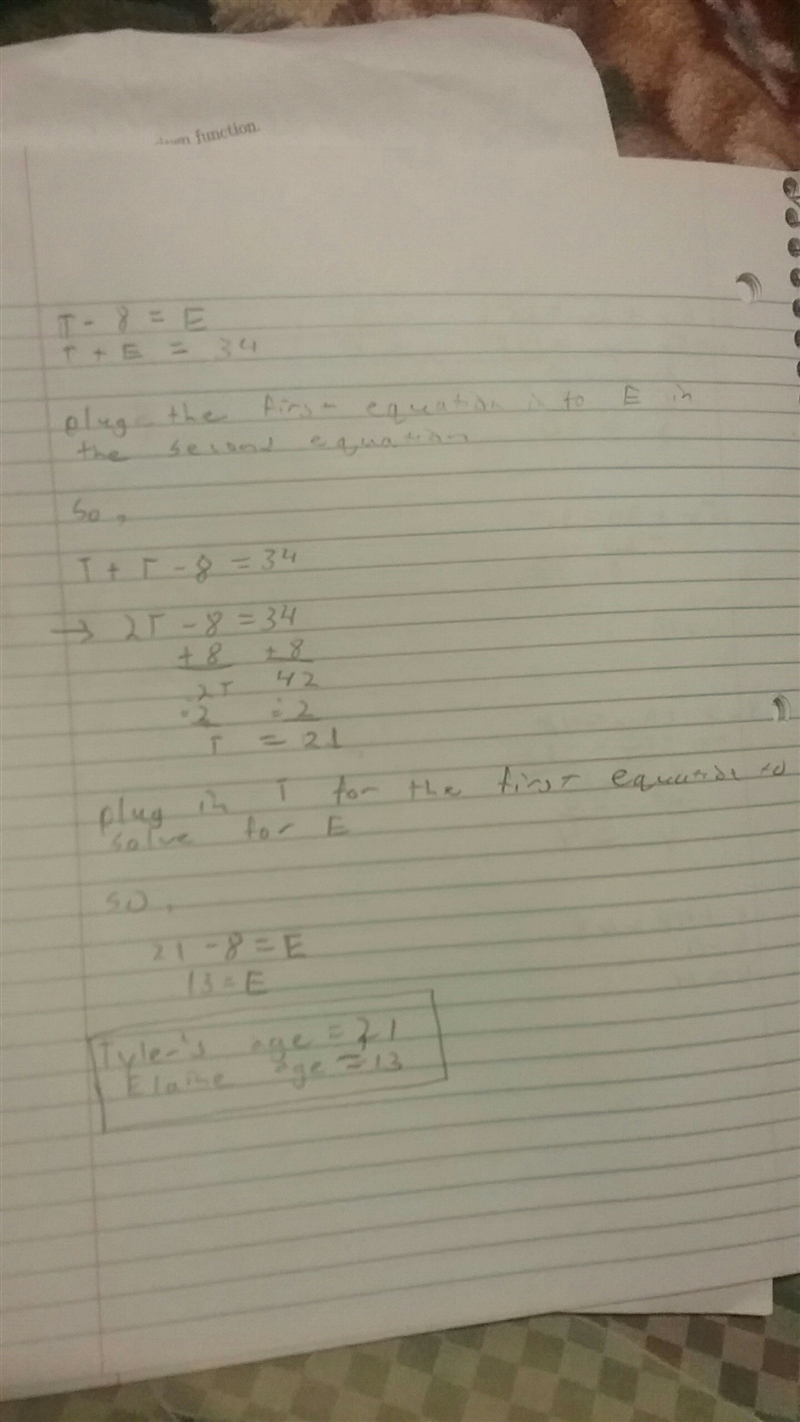 function.
T - 8 = E
T + E = 34
plug the first equation in to E in
the second equation
So,
T + T - 8 = 34
→ 2T - 8 = 34
+8 +8
2T 42
÷2 ÷2
T = 21
plug in T for the first equation to
solve for E
so,
21 - 8 = E
13 = E
Tyler's age = 21
Elaine age = 13